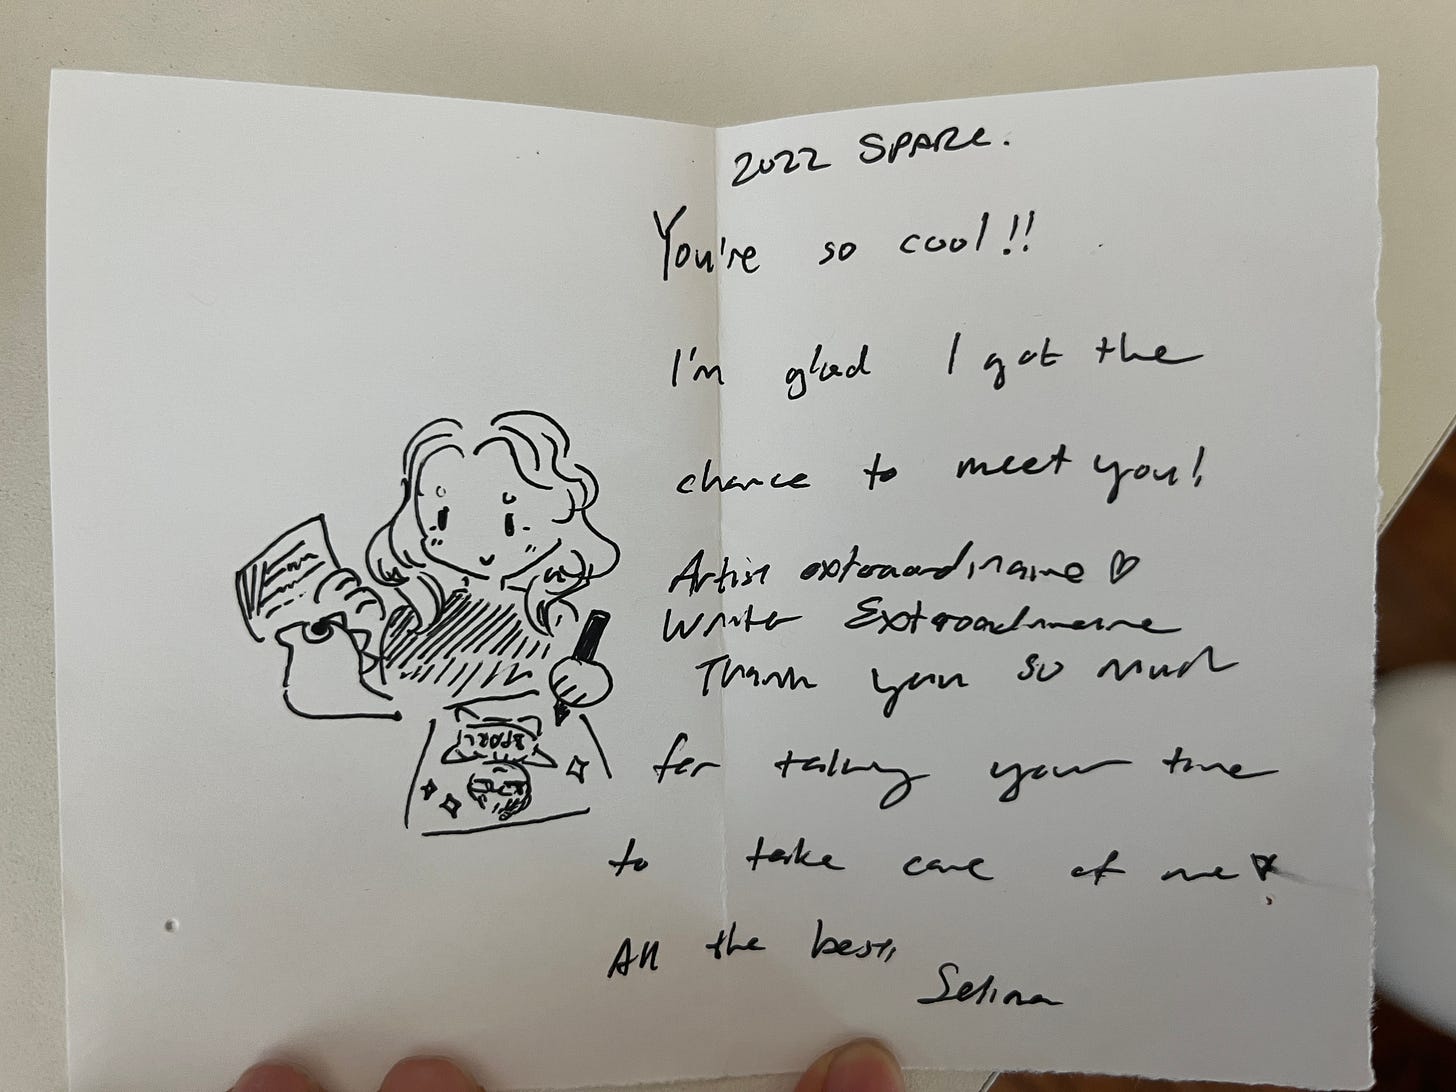 2022 SPARC.
You're so cool!!
I'm glad I got the
chance to meet you!
Artist extraordinaire ♡
Writer Extraordinaire
Thank you so much
for taking your time
to take care of me
All the best,
Selina
SPARC